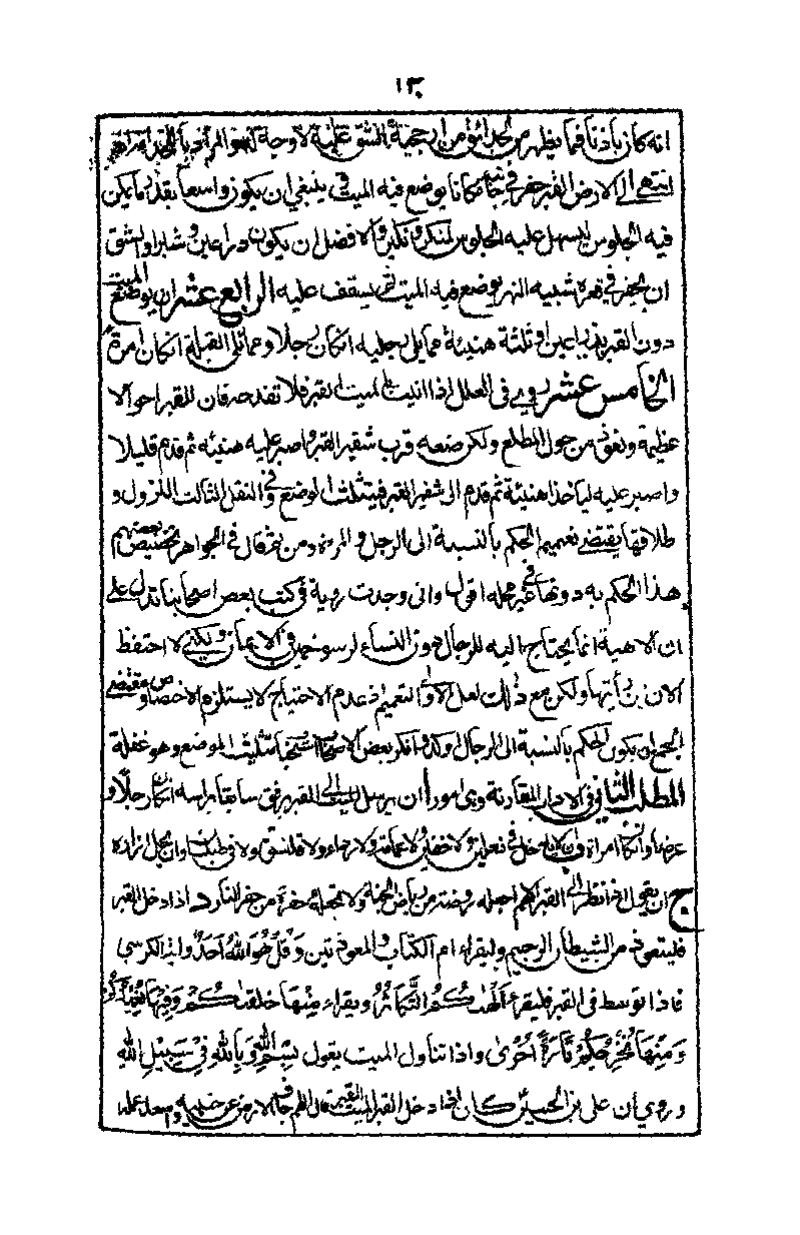 ١٣٠
انه كان باذنا فما يظهر من الحدائق من ارجحية الشق عليه لا وجه له
انتهى الى الارض القبر حفر في جانبه مكانا يوضع فيه الميت في ينبغي ان يكون واسعا بقدر ما يمكن
فيه الجلوس ليسهل عليه الجلوس لمنكر ونكير والافضل ان يكون ذراعين وشبرا والشق
ان يحفر في قعره شبيه النهر يوضع فيه الميت ثم يسقف عليه الرابع عشر ان يوضع الميت
دون القبر بذراعين او ثلثة هنيئة مما يلي رجليه انكان رجلا ومما يلي القبلة انكان امرأة
الخامس عشر روي في العلل اذا اتيت بالميت القبر فلا تفدحه فان للقبر احوالا
عظيمة وتعوذ من هول المطلع ولكن ضعه قرب شفير القبر واصبر عليه هنيئة ثم قدمه قليلا
واصبر عليه لياخذ اهنيئة ثم قدم الى شفير القبر فيتثلث الوضع وفي النقل الثالث النزول و
طلاقها يقتضي تعميم الحكم بالنسبة الى الرجل والمرءة ومن ثم قال في الجواهر تخصيص بعضهم
هذا الحكم به دونها في غير محله اقول واني وجدت رواية في كتب بعض اصحابنا تدل على
ان الاهبة انما يحتاج اليه للرجال دون النساء لرسوخهن في الايمان ولكني لا احتفظ
الان اين رأيتها ولكن مع ذلك لعل الاولى التعميم اذ عدم الاحتياج لا يستلزم الاختصاص ومقتضى
الجمع ان يكون الحكم بالنسبة الى الرجال اوكد وانكر بعض الاصحاب استحباب تثليث الموضع وهو غفلة
المطلب الثاني في الاداب المقارنة وهي امور ا ان يرسل الميت الى القبر برفق سابقا براسه انكان رجلا و
عرضا وانكان امراة ب ان لا يدخل في نعلين ولا خفين ولا عمامة ولا رداء ولا قلنسوة ولا وان يحل ازراره
ج ان يقول اذا نظر الى القبر اللهم اجعله روضة من رياض الجنة ولا تجعله حفرة من حفر النار د اذا دخل القبر
فليتعوذ من الشيطان الرجيم وليقراء ام الكتاب والمعوذتين وَقُلْ هُوَ اللهُ اَحَدٌ واية الكرسي
فاذا توسط في القبر فليقرء اَلْهٰيكُمُ التَّكَاثُرُ ويقراء مِنْهَا خَلَقْنَاكُمْ وَفِيْهَا نُعِيْدُكُمْ
وَمِنْهَا نُخْرِجُكُمْ تَارَةً اُخْرٰى واذا تناول الميت يقول بِسْمِ اللهِ وَبِاللهِ فِيْ سَبِيْلِ اللهِ
وروي ان علي بن الحسين كان اذا دخل القبر الميت قال اللهم جاف الارض عن جنبيه وصعد عمله